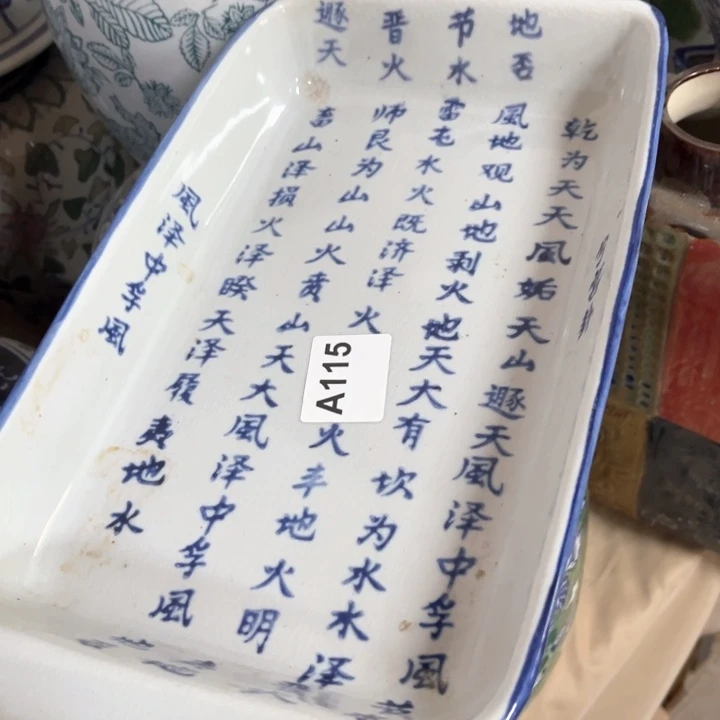 乾为天天風姤天山遯天風泽中孚風
地否風地观山地剥火地天大有坎为水水泽
节水雷屯水火既济泽火火丰地火明
晋火师艮为山山火贲山天大風泽中孚風
遯天畜山泽损火泽睽天泽履夷地水
風泽中孚風
A115